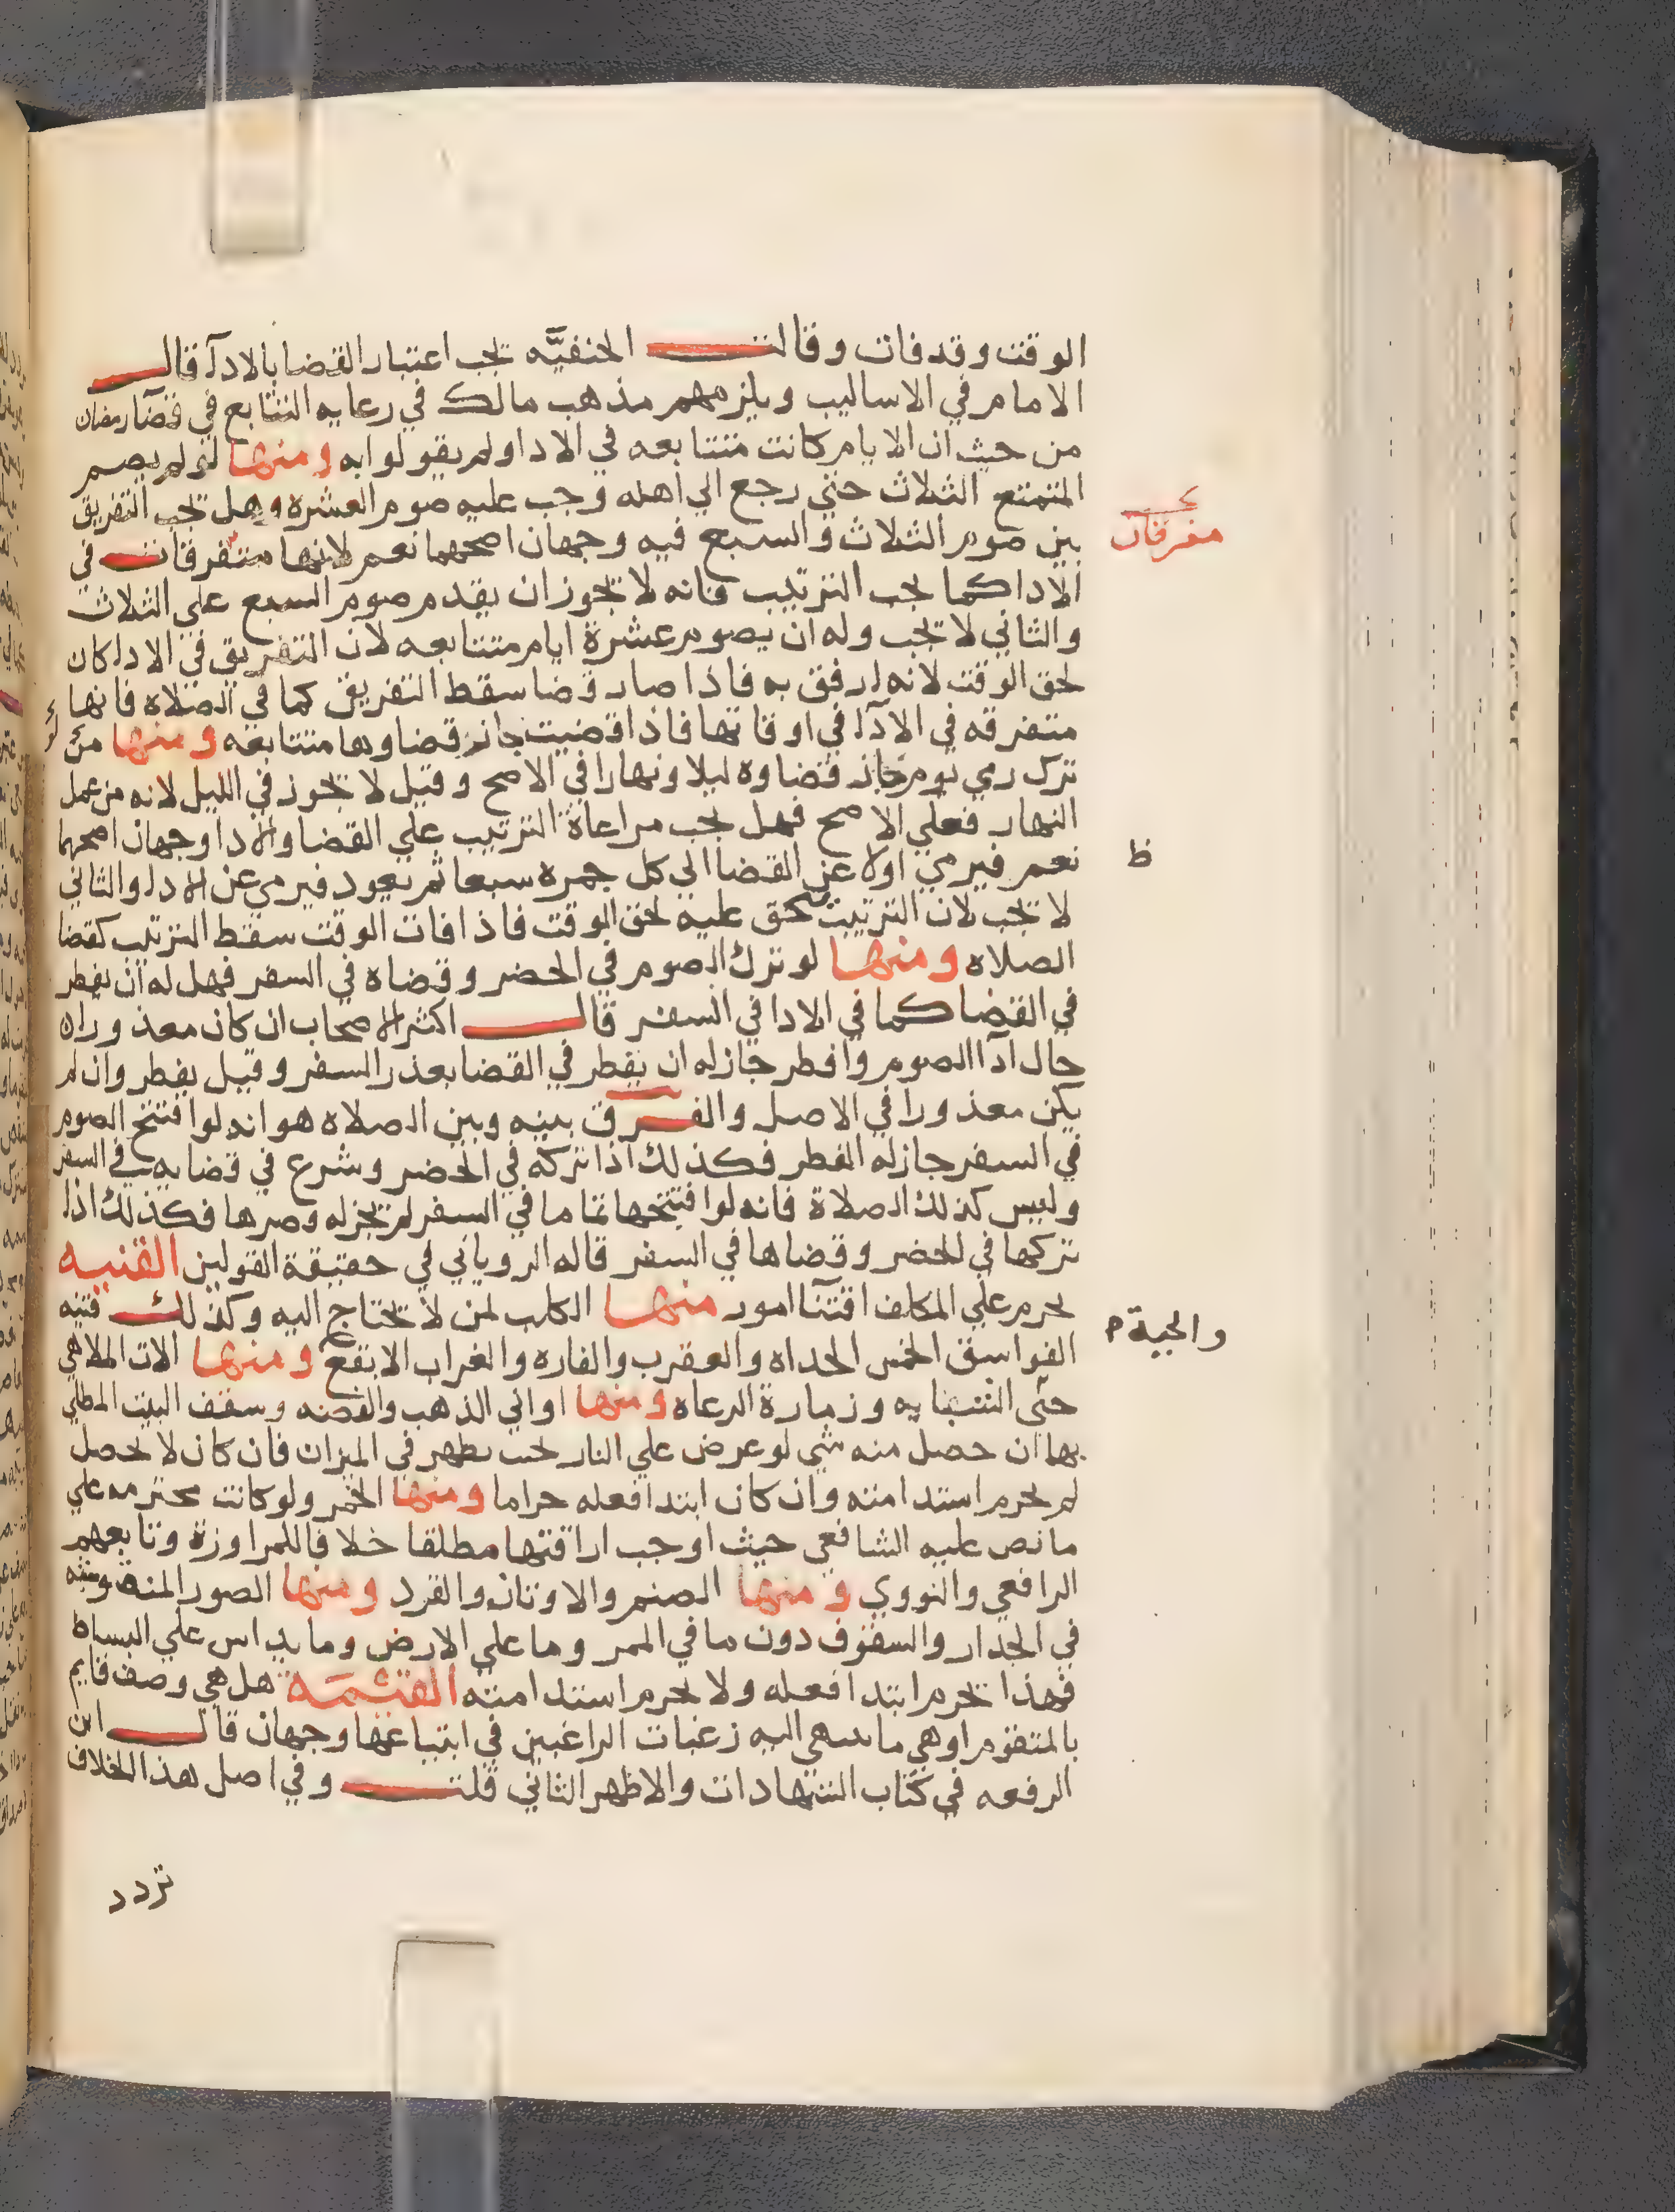 الوقت وقد فات وقالت الحنفيَّه تجب اعتبار القضا بالادآ قال
الامام في الاساليب ويلزمهم مذهب مالك في رعايه التتابع في قضآ رمضان
من حيث ان الايام كانت متتابعه في الادا ولم يقولوا به ومنها لو لم يصم
المتمتع الثلاث حتي رجع الي اهله وجب عليه صوم العشرة وهل تجب التفريق
بين صوم الثلاث والسبع فيه وجهان اصحهما نعم لانها متفرقات في
مفرقان
الادا كما يجب الترتيب فانه لا تجوز ان يقدم صوم السبع علي الثلاث
والثاني لا تجب وله ان يصوم عشرة ايام متتابعه لان التفريق في الادا كان
لحق الوقت لانه ارفق به فاذا صار قضا سقط التفريق كما في الصلاه فانها
متفرقه في الادآ في اوقاتها فاذا قضيت جاز قضاوها متتابعه ومنها من
لو
ترك رمي يوم جاز قضاوه ليلا ونهارا في الاصح وقيل لا تجوز في الليل لانه من عمل
النهار فعلي الاصح فهل يجب مراعاة الترتيب علي القضا والادا وجهان اصحهما
نعم فيرمي اولا عن القضا الي كل جمره سبعا ثم يعود فيرمي عن الادا والثاني
ظ
لا تجب لان الترتيب مستحق عليه لحق الوقت فاذا فات الوقت سقط الترتيب كقضا
الصلاه ومنها لو ترك الصوم في الحضر وقضاه في السفر فهل له ان يفطر
في القضا كما في الادا في السفر قال اكثر الاصحاب ان كان معذورا ه
حال آدا الصوم وافطر جاز له ان يفطر في القضا بعذر السفر وقيل يفطر وان لم
يكن معذورا في الاصل والفرق بينه وبين الصلاه هو انه لو افتتح الصوم
في السفر جاز له الفطر فكذلك اذا تركه في الحضر وشرع في قضايه في السفر
وليس كذلك الصلاة فانه لو افتتحها تماما في السفر لم تجز له وصرها فكذلك اذا
تركها في الحضر وقضاها في السفر قاله الروياني في حقيقة القولين القنيه
يحرم علي المكلف اقتنآ امور منها الكلب لمن لا تحتاج اليه وكذلك قنيه
الفواسق الخمس الحداه والعقرب والفاره والغراب الابقع ومنها الات الملاهي
والحية م
حتي الشبابه وزمارة الرعاه ومنها اواني الذهب والفضه وسقف البيت المطلي
بها ان حصل منه شي لو عرض علي النار بحيث يظهر في الميزان فان كان لا يحصل
لم يحرم استدامته وان كان ابتدا فعله حراما ومنها الخمر ولو كانت محترمه علي
ما نص عليه الشافعي حيث اوجب اراقتها مطلقا خلافا للمراوزة وتابعهم
الرافعي والنووي ومنها الصنم والاوثان والقرد ومنها الصور المنصوبه
في الجدار والسقوف دون ما في الممر وما علي الارض وما يداس علي البساط
فهذا تحرم ابتدا فعله ولا يحرم استدامته القيمَة هل هي وصف قايم
بالمتقوم او هي ما ينتهي اليه رغبات الراغبين في ابتياعها وجهان قال ابن
الرفعه في كتاب الشهادات والاظهر الثاني قلت وفي اصل هذا الخلاف
تردد